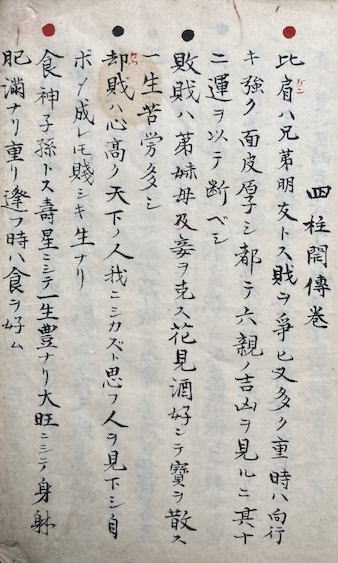 四柱開傳巻
比肩ハ兄弟朋友トス賊ヲ爭ヒ又多ク重時ハ向行
キ強ク面皮厚シ都テ六親ノ吉凶ヲ見ルニ其十
二運ヲ以テ断ベシ
敗賊ハ弟妹母及妾ヲ克ス花見酒好シテ寶ヲ散ス
一生苦労多シ
却賊ハ心高ク天下ノ人我ニシカズト思フ人ヲ見下シ自
成レ𪜈賤シキ生ナリ
食神子孫トス壽星ニシテ一生豊ナリ大旺ニシテ身躰
肥満ナリ重り逢フ時ハ食ヲ好ム